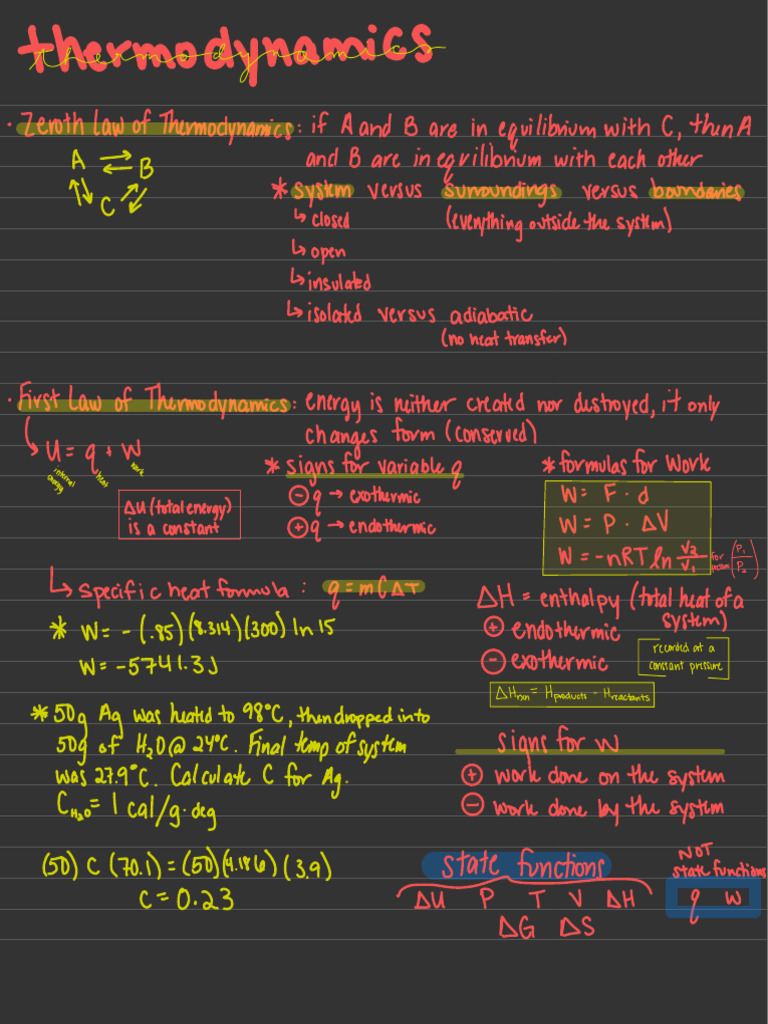 thermodynamics
thermodynamics
· Zeroth Law of Thermodynamics: if A and B are in equilibrium with C, then A
and B are in equilibrium with each other
A ⇌ B
C
* system versus surroundings versus boundaries
↳ closed (everything outside the system)
↳ open
↳ insulated
↳ isolated versus adiabatic
(no heat transfer)
· First Law of Thermodynamics: energy is neither created nor destroyed, it only
changes form (conserved)
↳ U = q + W
internal energy heat work
ΔU (total energy)
is a constant
* signs for variable q
⊖ q → exothermic
⊕ q → endothermic
* formulas for Work
W = F · d
W = P · ΔV
W = -nRT ln V2/V1 for (P1/P2)
↳ specific heat formula: q = mCΔT
* W = -(.85)(8.314)(300) ln 15
W = -5741.3 J
ΔH = enthalpy (total heat of a
system)
⊕ endothermic
⊖ exothermic
recorded at a
constant pressure
ΔHrxn = Hproducts - Hreactants
* 50g Ag was heated to 98°C, then dropped into
50g of H2O @ 24°C. Final temp of system
was 27.9°C. Calculate C for Ag.
CH2O = 1 cal/g·deg
(50) C (70.1) = (50)(4.186)(3.9)
C = 0.23
signs for w
⊕ work done on the system
⊖ work done by the system
state functions
ΔU P T V ΔH
ΔG ΔS
NOT
state functions
q w